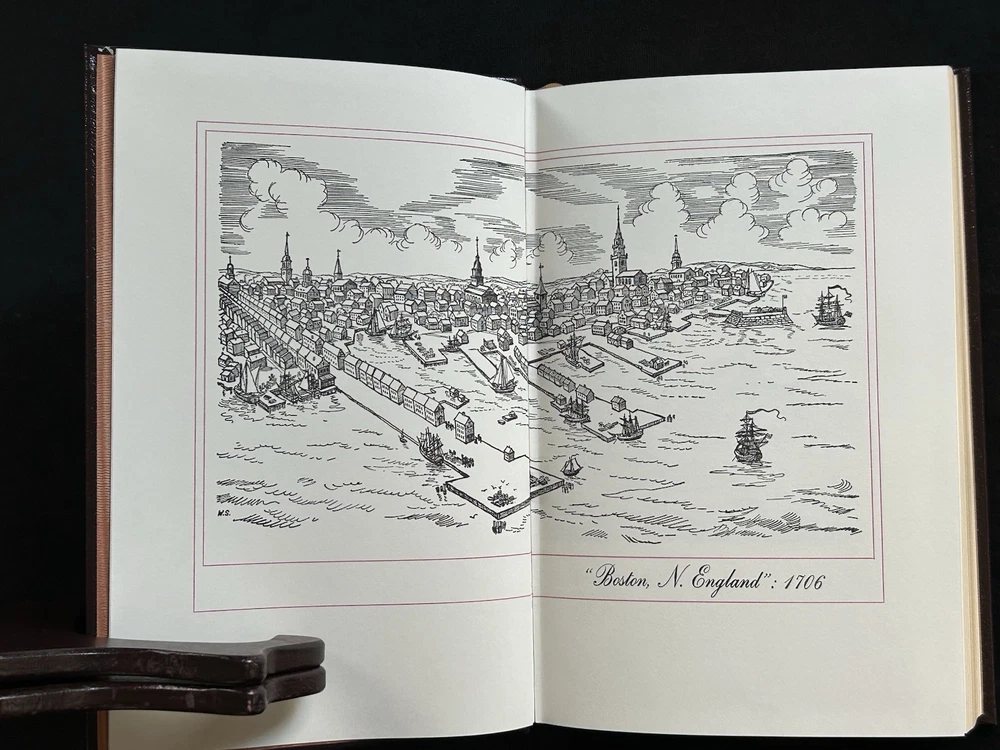 W.S.
"Boston, N. England": 1706